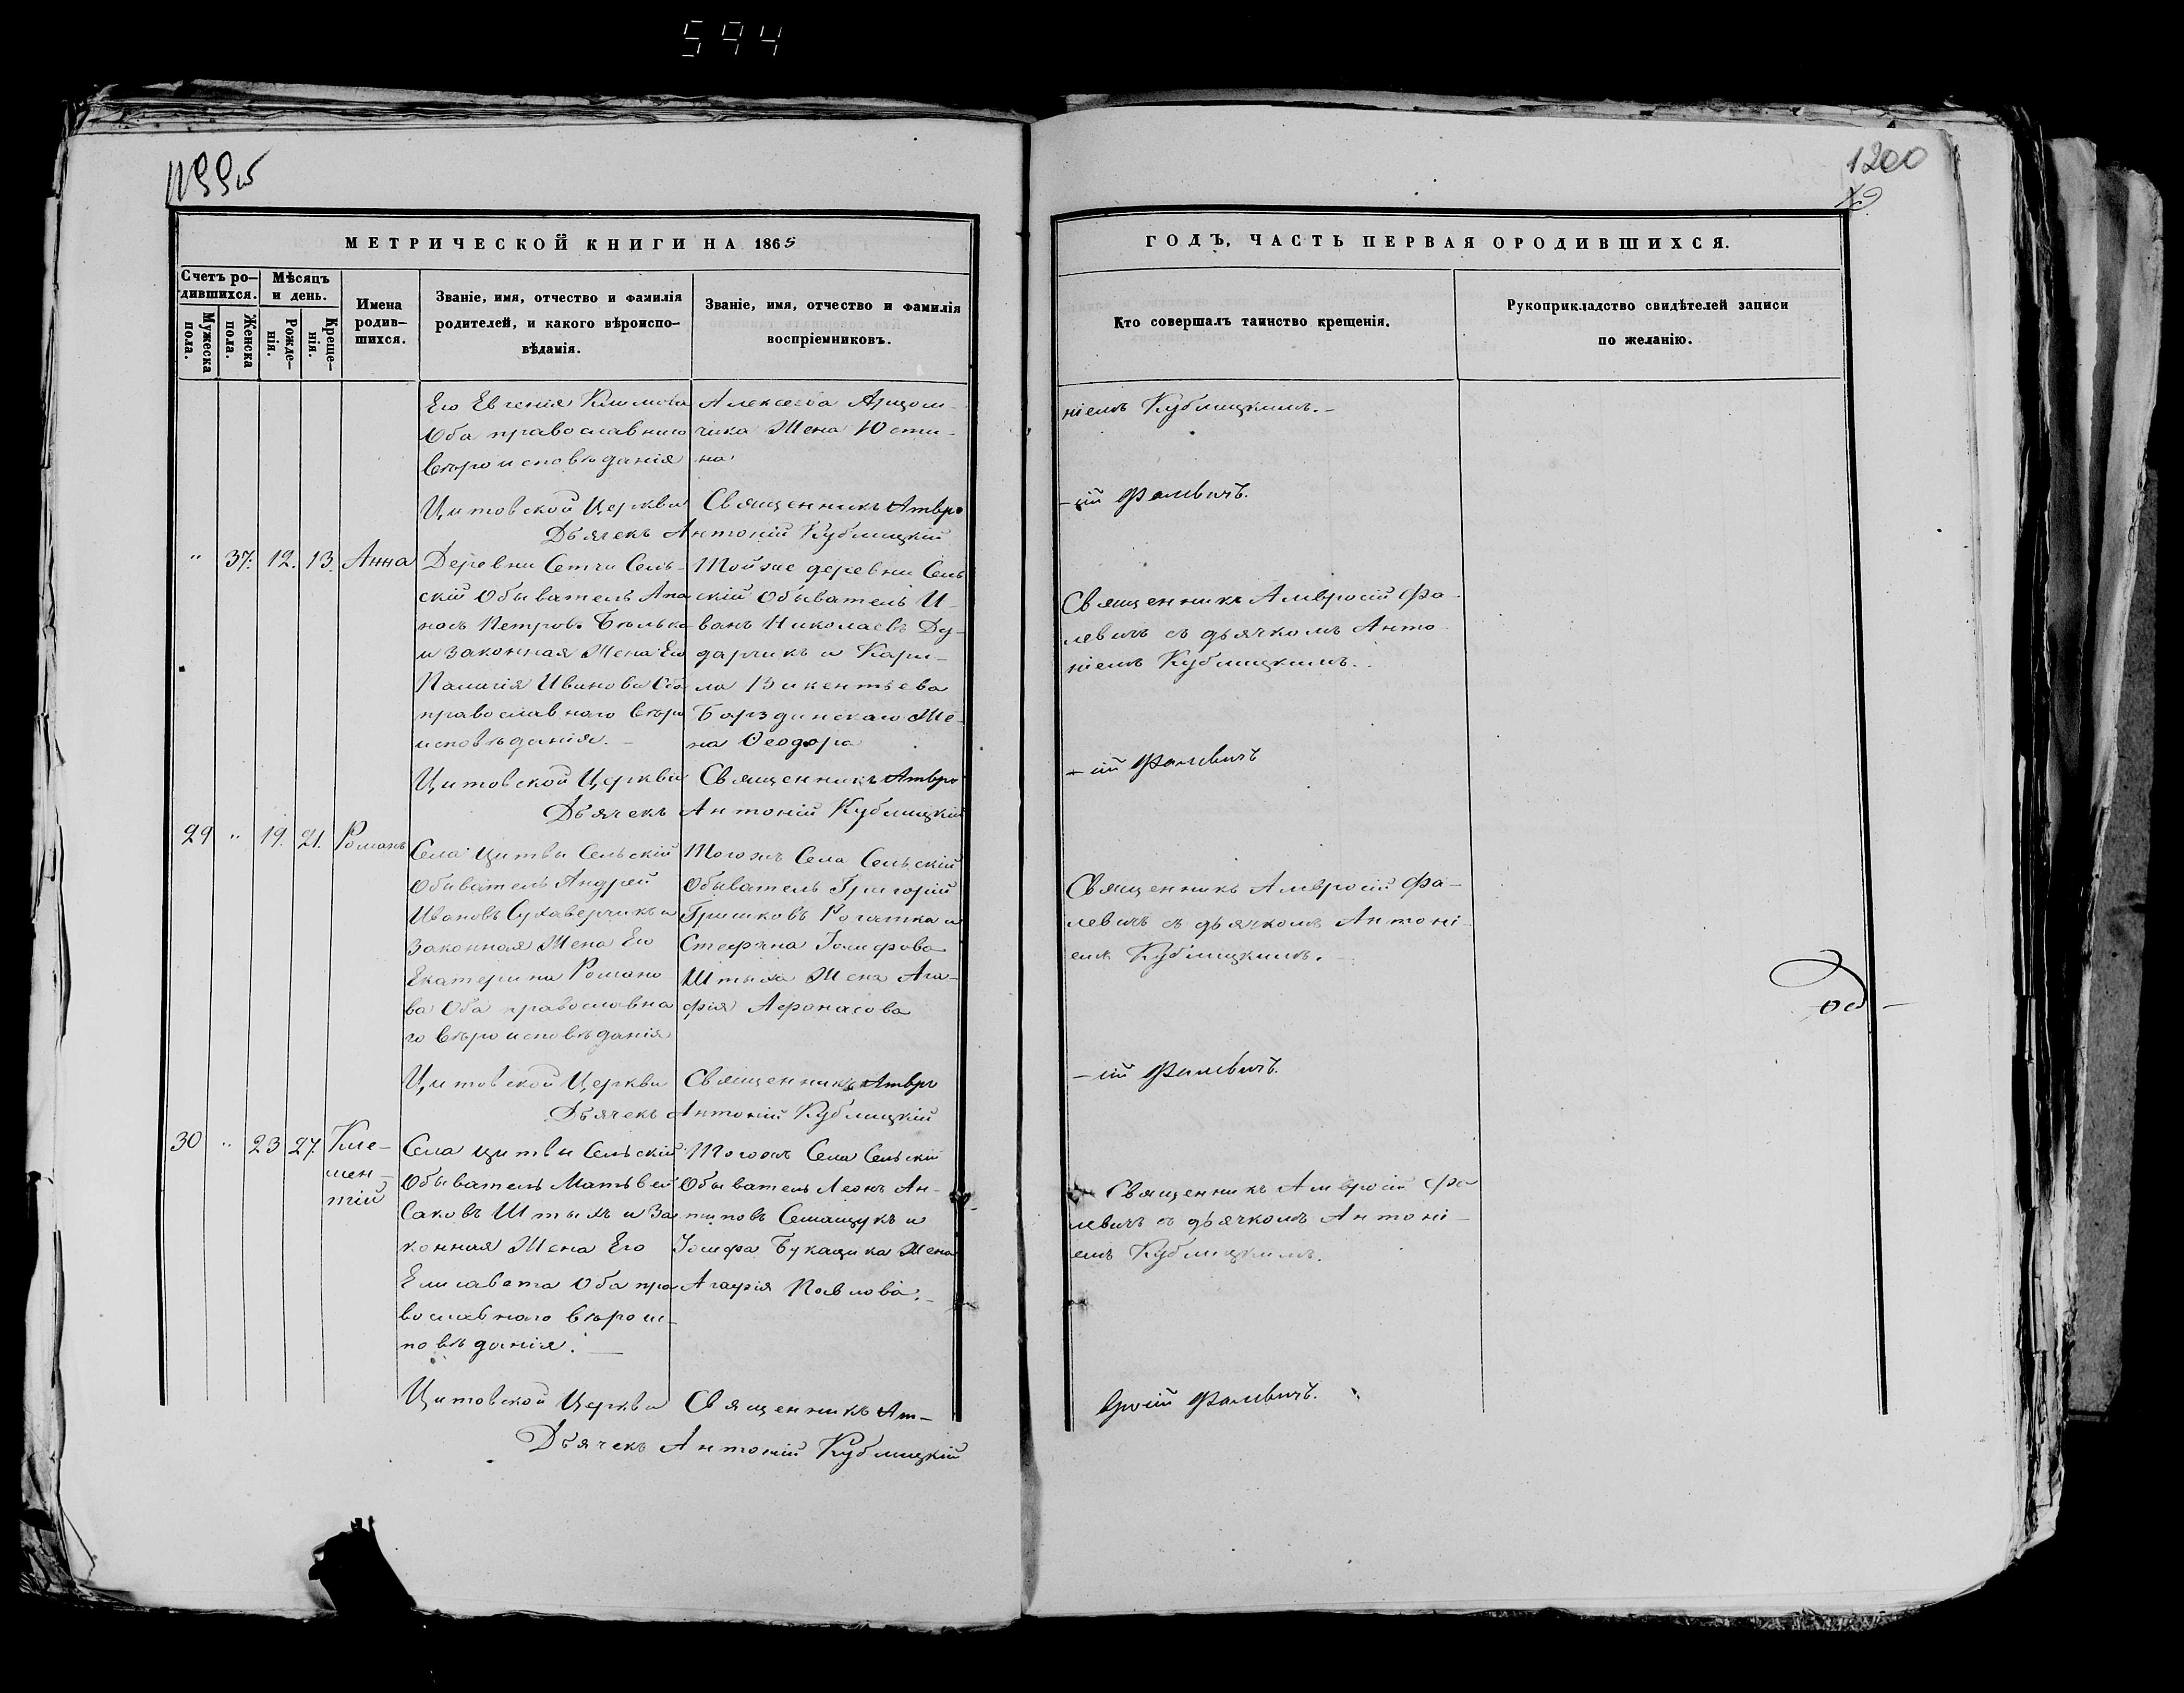 594
1199об
1200
МЕТРИЧЕСКОЙ КНИГИ НА 1865
ГОДЪ, ЧАСТЬ ПЕРВАЯ ОРОДИВШИХСЯ.
Счетъ ро-
дившихся.
Мужеска пола.
Женска пола.
Мѣсяцъ
и день.
Рожде-
нія.
Креще-
нія.
Имена
родив-
шихся.
Званіе, имя, отчество и фамилія
родителей, и какого вѣроиспо-
вѣдамія.
Званіе, имя, отчество и фамилія
воспріемниковъ.
Кто совершалъ таинство крещенія.
Рукоприкладство свидѣтелей записи
по желанію.
Его Евгенія Климова
Оба православнаго
вѣроисповѣданія
Алексѣева
чика Жена Юсти-
на
ніемъ Кублицкимъ.-
Цитовской Церкви Священникъ Амвро
-сій Фалевичъ.
Дьячекъ Антоній Кублицкій
" 37. 12. 13. Анна
Деревни Сетчи Сель-
скій Обыватель Апа
насъ Петровъ Бѣлько
и Законная Жена Его
Палагія Иванова Оба
православнаго вѣро
исповѣданія.-
Тойже деревни Сель
скій Обыватель И-
ванъ Николаевъ Ду-
дарчикъ и Кари-
ла Викентьева
Борздинскаго Же-
на Ѳеодора
Священникъ Амвросій Фа-
левичъ съ дьячкомъ Анто-
ніемъ Кублицкимъ..
Цитовской Церкви Священникъ Амвро
-сій Фалевичъ
Дьячекъ Антоній Кублицкій
29 " 19. 21. Романъ
Села Цитвы Сельскій
Обыватель Андрей
Ивановъ Сухаверчикъ и
Законная Жена Его
Екатерина Романо
ва Оба православна
го вѣроисповѣданія
Тогожъ Села Сельскій
Обыватель Григорій
Гришковъ Рогатка и
Стефана Іосифова
Штыха Жена Ага-
фія Афанасова
Священникъ Амвросій Фа-
левичъ съ дьячкомъ Антоні-
емъ Кублицкимъ.-
Цитовской Церкви Священникъ Амвро
-сій Фалевичъ.
Дьячекъ Антоній Кублицкій
30 " 23 27. Кле-
мен-
тій
Села Цитвы Сельскій
Обыватель Матѣвей
Саковъ Штыхъ и За
конная Жена Его
Елисавета Оба пра
вославнаго вѣроис-
повѣданія.-
Тогожъ Села Сельскій
Обыватель Леонъ Ан-
типовъ Семащукъ и
Іосифа Букащика Жена
Агафія Павлова.-
Священникъ Амвросій Фа
левичъ съ дьячкомъ Антоні-
емъ Кублицкимъ.
Цитовской Церкви Священникъ Ам-
вросій Фалевичъ.
Дьячекъ Антоній Кублицкій